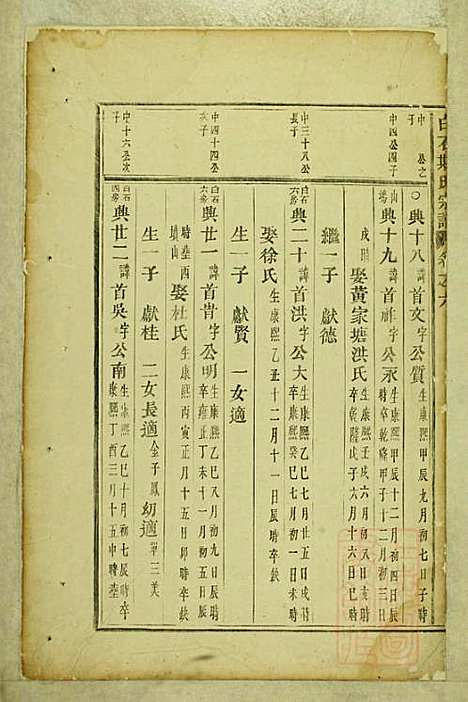 白石 氏宗譜 卷之六
中 公之子
○典十八 諱首文 字公質 生康熙甲辰九月初七日子時
中四公四子
典十九 諱首 字公永 生康熙甲辰十二月初四日辰時 卒乾隆甲子十二月初三日戌時
娶黃家塘洪氏 生康熙壬戌六月初八日亥時 卒乾隆戊子六月十六日巳時
繼一子 獻德
中三十八公長子
白石四房 典二十 諱首洪 字公大 生康熙乙巳七月廿五日戌時 卒康熙癸巳七月初一日未時
娶徐氏 生康熙乙丑十二月十一日辰時 卒缺
生一子 獻賢 一女適
中四十四公次子
白石六房 典廿一 諱首 字公明 生康熙乙巳八月初九日辰時 卒雍正丁未十一月初五日
時塟西填山 娶杜氏 生康熙丙寅正月十五日卯時 卒缺
生一子 獻桂 二女長適金子鳳 幼適單三美
中十六公次子
白石四房 典廿二 諱首吳 字公南 生康熙乙巳十月初七辰時 卒康熙丁酉三月十五申時塟